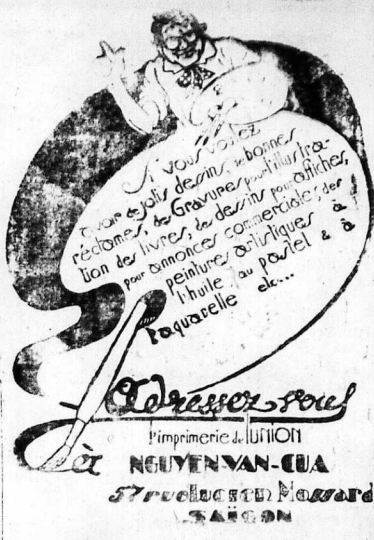 Si vous voulez
avoir de jolis dessins, de bonnes
réclames, des Gravures pour l'illustra-
tion des livres, des dessins pour affiches,
pour annonces commerciales, des
peintures artistiques à
l'huile au pastel & à
l'aquarelle etc...
Adressez-vous
à
l'imprimerie de l'UNION
NGUYEN-VAN-CUA
57 rue Lucien Mossard
SAÏGON